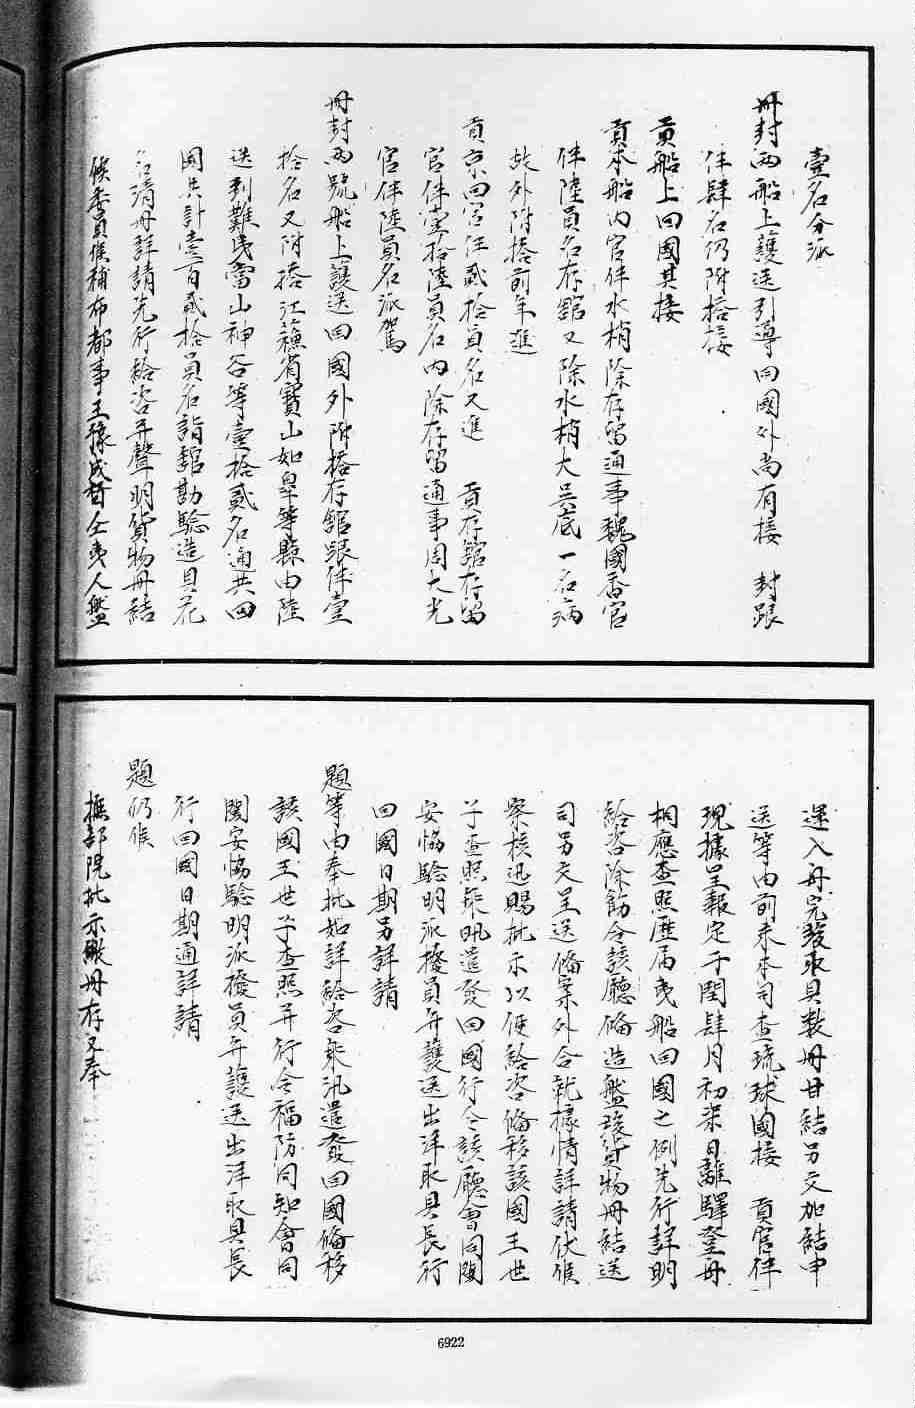 壹名分派
冊封兩船上護送引導回國外尚有接　封跟
伴肆名仍附搭接
貢船上回國其接
貢本船內官伴水梢除存留通事魏國香官
伴陸員名存館又除水梢大呈底一名病
故外附搭前年進
貢京回官伴貳拾員名又進　貢存館存留
官伴壹拾陸員名內除存留通事周大光
官伴陸員名派駕
冊封兩號船上護送回國外附搭存館跟伴壹
拾名又附搭江蘓省寶山如皋等縣由陸
送到難夷富山神谷等壹拾貳名通共回
國共計壹百貳拾員名詣館勘驗造具花
名清冊詳請先行給咨并聲明貨物冊結
候委員候補布都事王豫成督仝夷人盤
運入舟完竣取具数冊甘結另文加結申
送等由前來本司查琉球國接　貢官伴
現據呈報定于閏肆月初柒日離驛登舟
相應查照歷屆夷船回國之例先行詳明
給咨除飭令該廳俻造盤驗貨物冊結送
司另文呈送俻案外合就據情詳請伏候
察核迅賜批示以便給咨俻移該國王世
子查照乘汛遣發回國行令該廳會同閩
安恊驗明派撥員弁護送出洋取具長行
回國日期另詳請
題等由奉批如詳給咨乘汛遣發回國俻移
該國王世子查照并行令福防同知會同
閩安恊驗明派撥員弁護送出洋取具長
行回國日期通詳請
題仍候
撫部院批示繳冊存又奉
6922